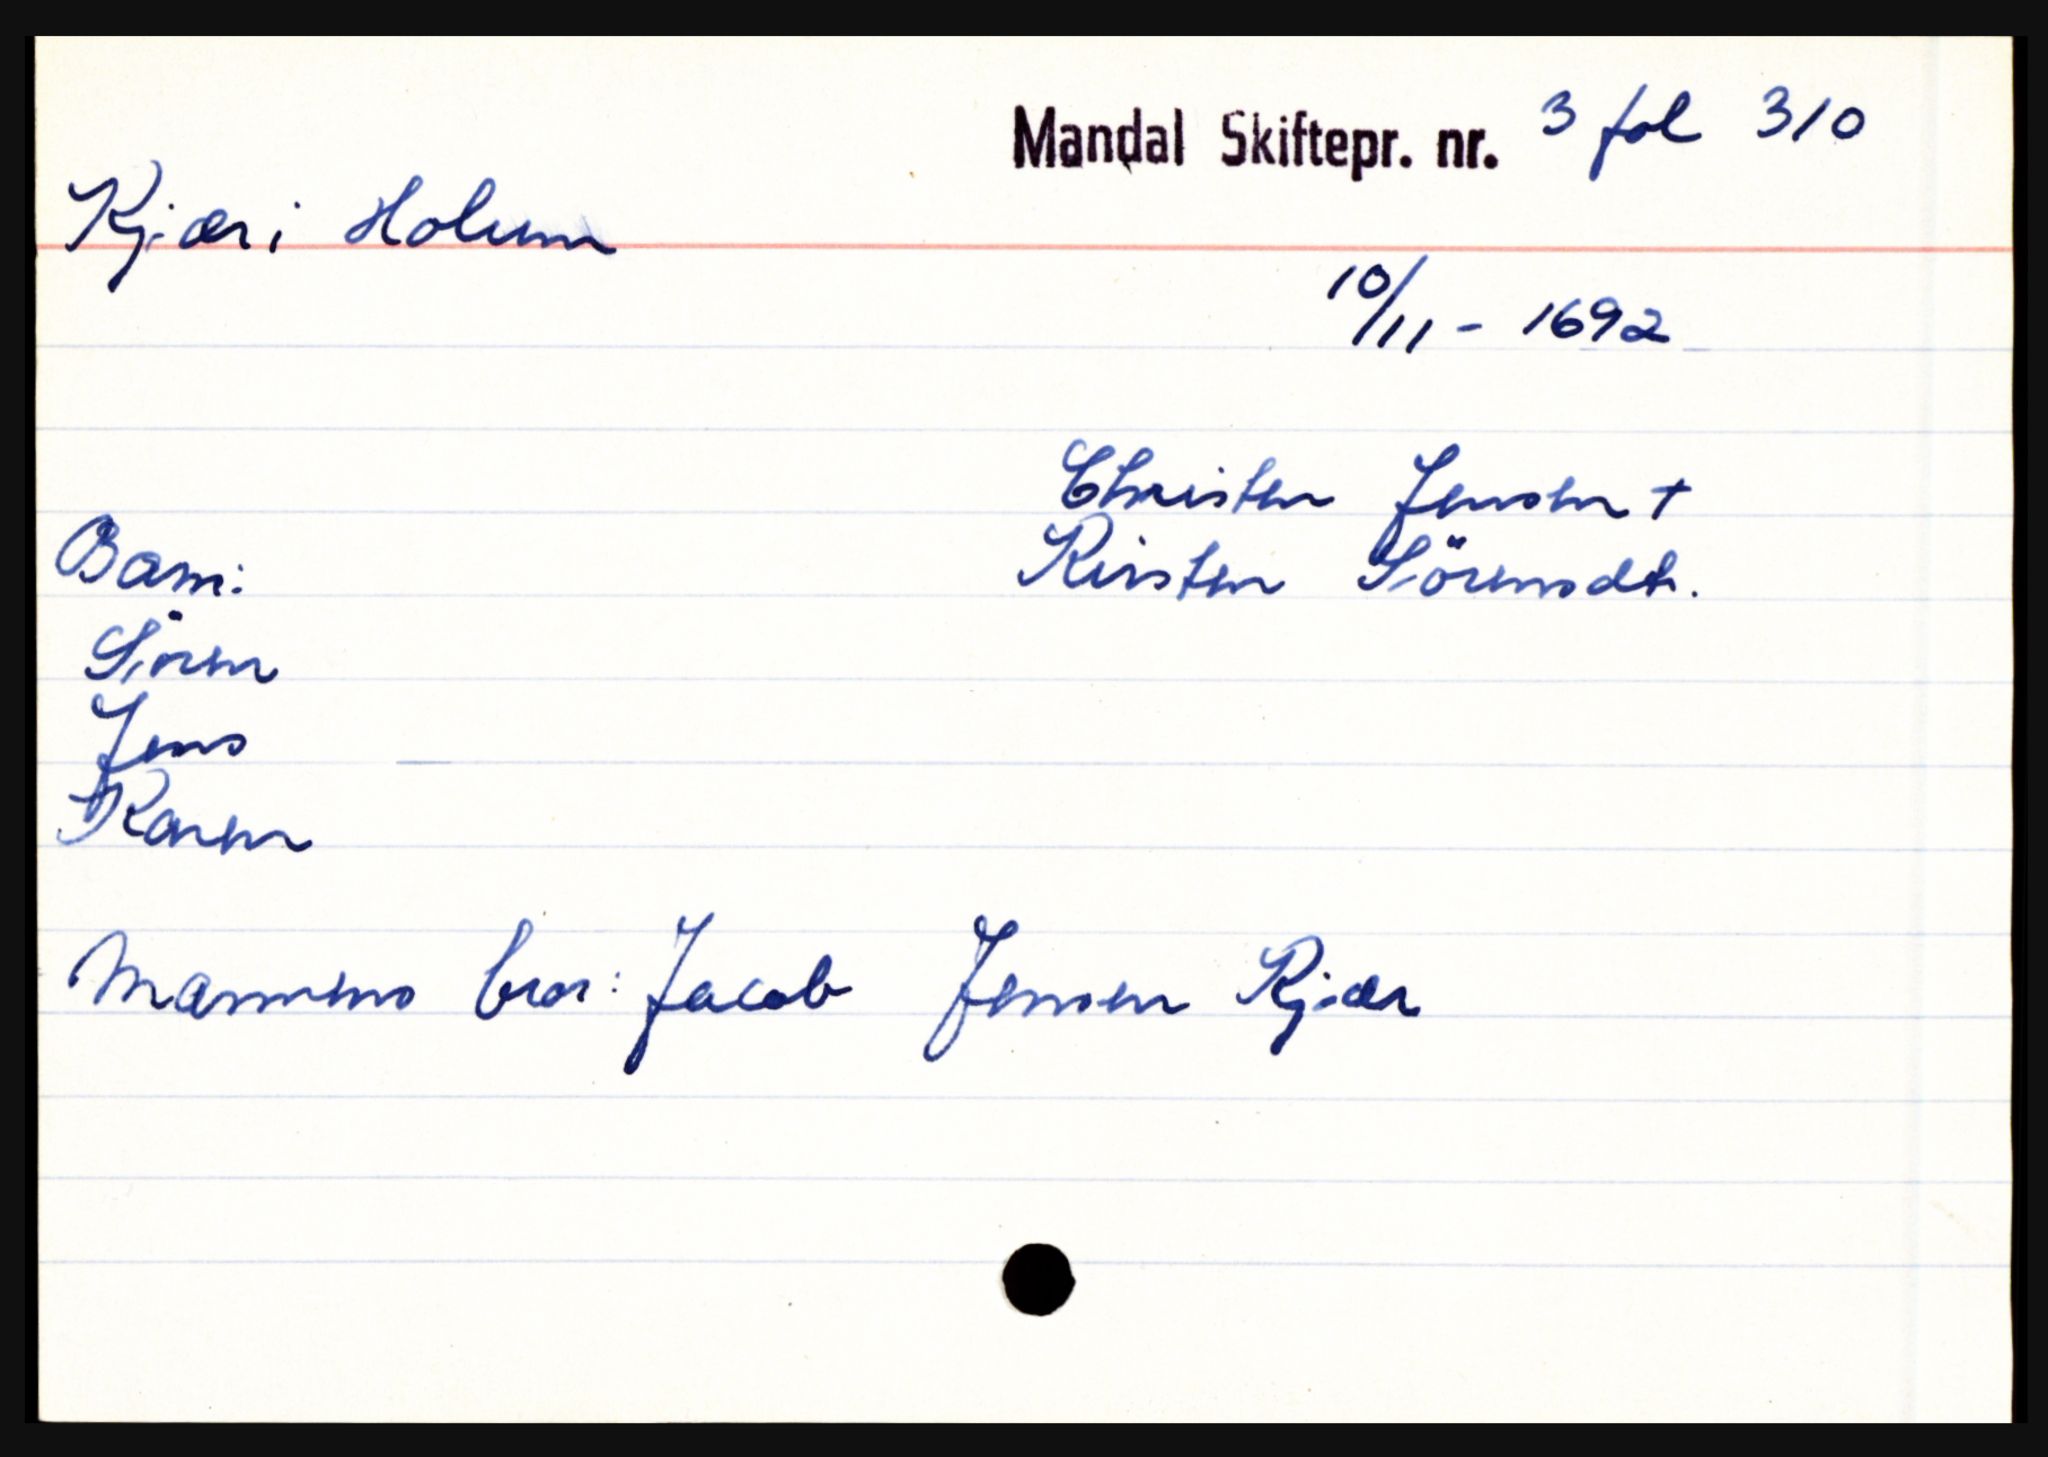 Mandal Skiftepr. nr. 3 fol 310
Kjær i Holum
10/11 - 1692
Christen Jensen +
Kirsten Sörensdt.
Barn:
Sören
Jens
Karen
Mannens bror: Jacob Jensen Kjær